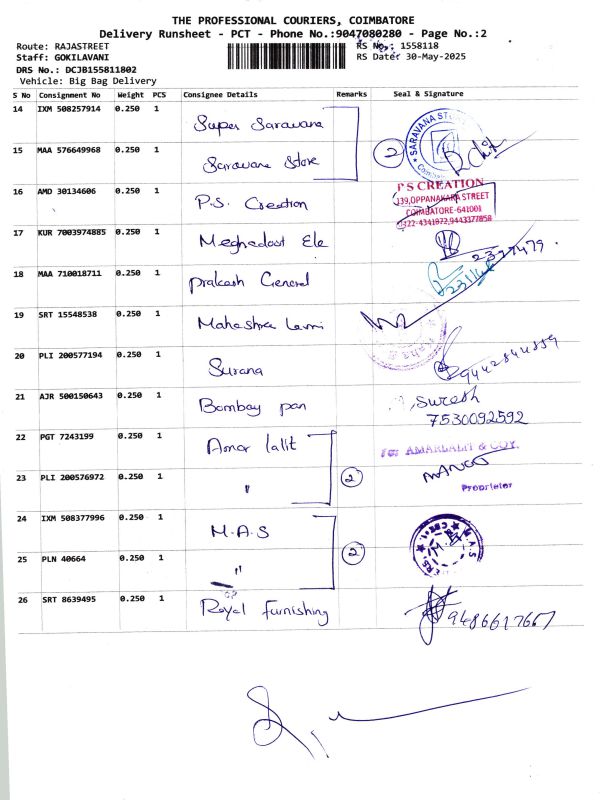 THE PROFESSIONAL COURIERS, COIMBATORE
Delivery Runsheet - PCT - Phone No.:9047080280 - Page No.:2
Route: RAJASTREET
RS No.: 1558118
Staff: GOKILAVANI
RS Date: 30-May-2025
DRS No.: DCJB155811802
Vehicle: Big Bag Delivery
S No Consignment No Weight PCS Consignee Details Remarks Seal & Signature
14 IXM 508257914 0.250 1 Super Saravana
15 MAA 576649968 0.250 1 Saravana Store 2 SARAVANA
16 AMD 30134606 0.250 1 P.S. Creation
P S CREATION
139,OPPANAKARA STREET
COIMBATORE-641001
0422-4341972,9443377858
17 KUR 7003974885 0.250 1 Meghadoot Ele
18 MAA 710018711 0.250 1 prakash General
19 SRT 15548538 0.250 1
20 PLI 200577194 0.250 1 Surana
21 AJR 500150643 0.250 1 Bombay pan Suresh
7530092592
22 PGT 7243199 0.250 1 Amar lalit For AMARLALIT & COY.
23 PLI 200576972 0.250 1 " 2
Proprietor
24 IXM 508377996 0.250 1 M.A.S M.A.S
25 PLN 40664 0.250 1 " 2
26 SRT 8639495 0.250 1 Royal Furnishing 9486617667